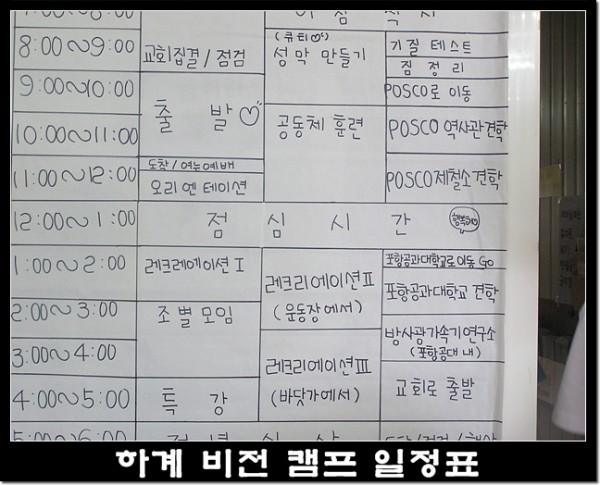 아 침 식 사
8:00~9:00
교회집결 / 점검
(큐티♡)
성막 만들기
기질 테스트
짐 정리
9:00~10:00
출 발♡
POSCO로 이동
10:00~11:00
공동체 훈련
POSCO 역사관견학
11:00~12:00
도착/여는예배
오리엔테이션
POSCO제철소견학
12:00~1:00
점 심 시 간
1:00~2:00
레크레에이션 I
레크리에이션 II
(운동장에서)
포항공과대학교로이동 Go
포항공과대학교 견학
2:00~3:00
조별 모임
방사광가속기연구소
(포항공대 내)
3:00~4:00
레크리에이션 III
(바닷가에서)
교회로 출발
4:00~5:00
특 강
5:00~6:00
하계 비전 캠프 일정표